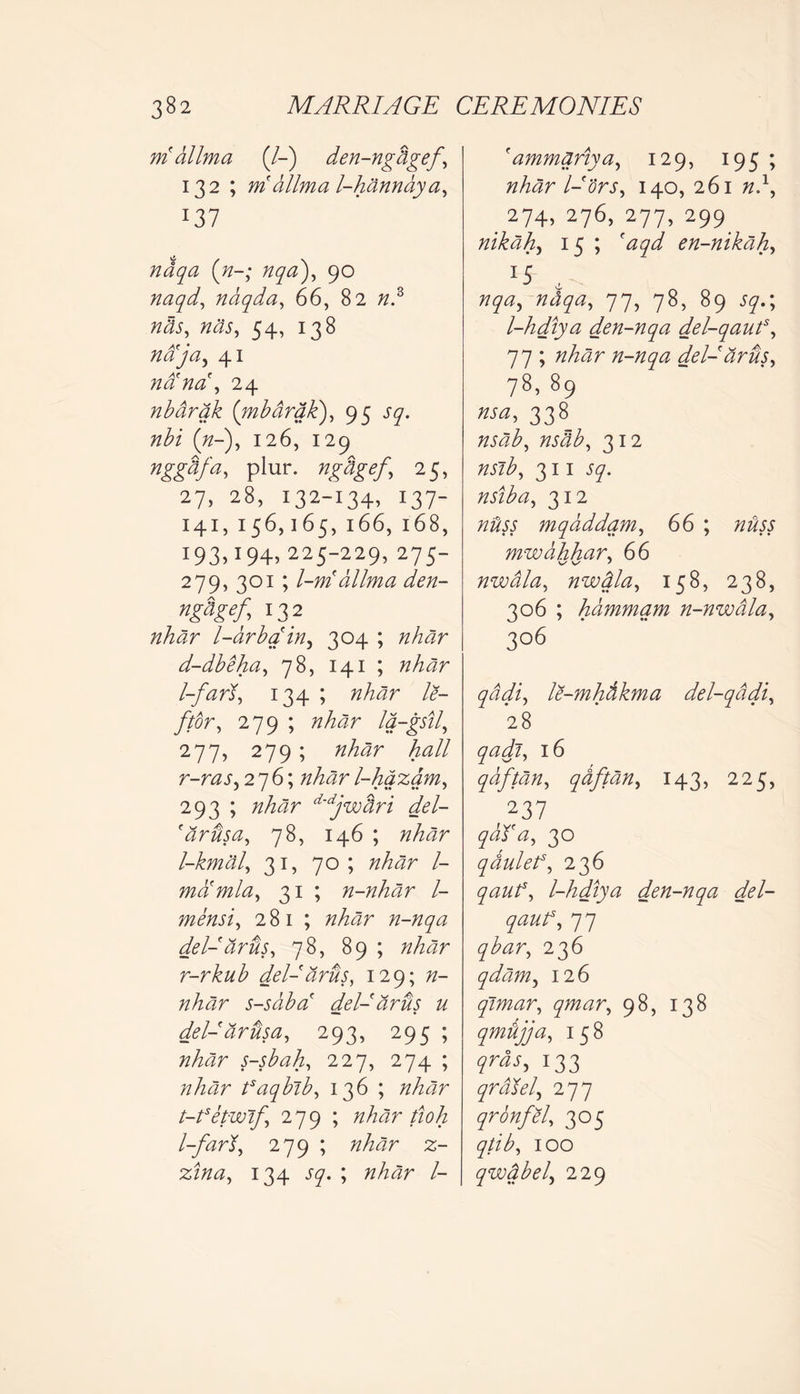 382 MARRIAGE CEREMONIES
m'ällma (l-) den-ngâgef,
132 ; m'ällma l-hännāya,
137
nâqa (n-; nqa), 90
naqd, nâqda, 66, 82 n.³
nās, nâs, 54, 138
nā'ja, 41
nā'na', 24
nbârạk (mbârạk), 95 sq.
nbi (n-), 126, 129
nggâfa, plur. ngâgef, 25,
27, 28, 132-134, 137-
141, 156, 165, 166, 168,
193, 194, 225-229, 275-
279, 301 ; l-m'ällma den-
ngâgef, 132
nhār l-ärbạ'in, 304 ; nhār
d-dbêḥa, 78, 141 ; nhār
l-farš, 134 ; nhār lĕ-
ftôr, 279 ; nhār lạ-ġsîl,
277, 279 ; nhār ḥall
r-ras, 276 ; nhār l-ḥạzâm,
293 ; nhār ᵈ⁻ᵈjwâri del-
'ărûsa, 78, 146 ; nhār
l-kmāl, 31, 70 ; nhār l-
mā'mla, 31 ; n-nhār l-
mênsi, 281 ; nhār n-nqa
del-'ărûs, 78, 89 ; nhār
r-rkub del-'ărûs, 129 ; n-
nhār s-sâba' del-'ărûs u
del-'ărûsa, 293, 295 ;
nhār ṣ-ṣbaḥ, 227, 274 ;
nhār tˢaqbīb, 136 ; nhār
t-tˢêṭwīf, 279 ; nhār ṭloḥ
l-farš, 279 ; nhār z-
zîna, 134 sq. ; nhār l-
'ammạrîya, 129, 195 ;
nhār l-'örs, 140, 261 n.¹,
274, 276, 277, 299
nikāḥ, 15 ; 'aqd en-nikāḥ,
15
nqa, nâqa, 77, 78, 89 sq.;
l-hdîya den-nqa del-qautˢ,
77 ; nhār n-nqa del-'ărûs,
78, 89
nsa, 338
nsāb, nsâb, 312
nsīb, 311 sq.
nsîba, 312
nûṣṣ mqáddạm, 66 ; nûṣṣ
mwáḫḫar, 66
nwâla, nwậla, 158, 238,
306 ; ḥámmạm n-nwâla,
306
qâḍi, lĕ-mḥâkma del-qâḍi,
28
qaḍī, 16
qâfṭān, qâfṭān, 143, 225,
237
qāš'a, 30
qâuletˢ, 236
qautˢ, l-hdîya den-nqa del-
qautˢ, 77
qbar, 236
qddām, 126
qīmar, qmar, 98, 138
qmûjja, 158
qrâs, 133
qrâšel, 277
qrônfĕl, 305
qṭib, 100
qwậbel, 229